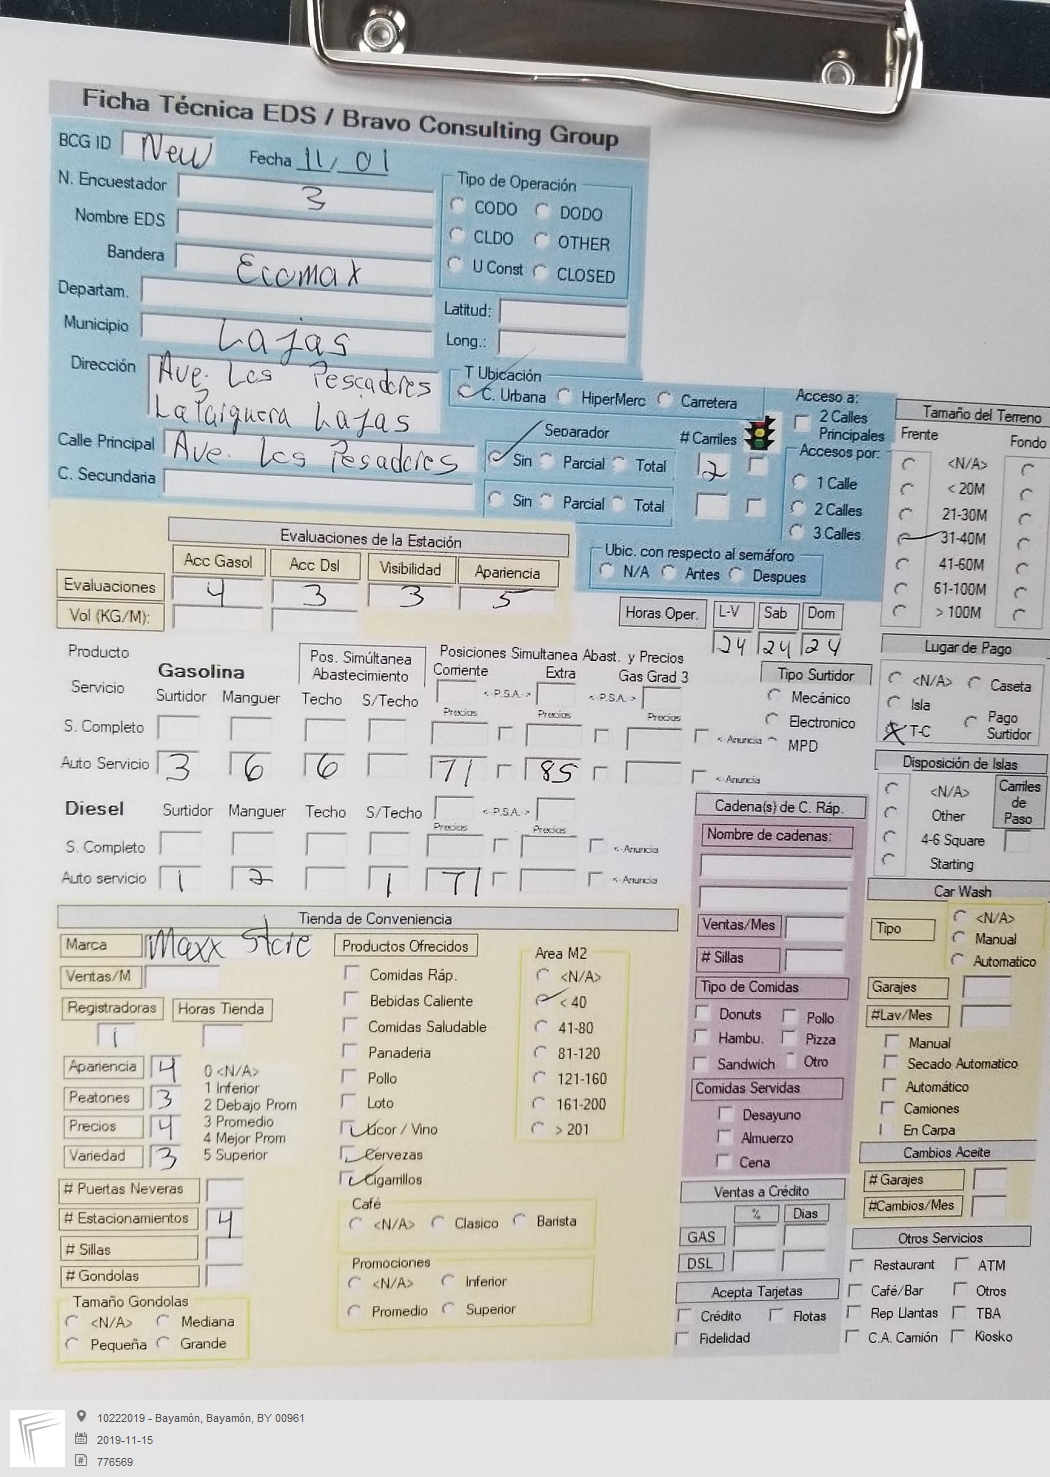 Ficha Técnica EDS / Bravo Consulting Group
BCG ID New Fecha 11/01
N. Encuestador 3
Nombre EDS
Bandera Ecomax
Departam.
Municipio Lajas
Dirección Ave. Los Pescadores
La Parguera Lajas
Calle Principal Ave. Los Pesadores
C. Secundaria
Tipo de Operación
CODO DODO
CLDO OTHER
U Const CLOSED
Latitud:
Long.:
T Ubicación
C. Urbana HiperMerc Carretera
Separador # Carriles
Sin Parcial Total 2
Sin Parcial Total
Acceso a:
2 Calles
Principales
Accesos por:
1 Calle
2 Calles
3 Calles
Ubic. con respecto al semáforo
N/A Antes Despues
Tamaño del Terreno
Frente Fondo
<N/A>
< 20M
21-30M
31-40M
41-60M
61-100M
> 100M
Evaluaciones de la Estación
Acc Gasol Acc Dsl Visibilidad Apariencia
Evaluaciones 4 3 3 5
Vol (KG/M):
Horas Oper. L-V Sab Dom
24 24 24
Producto
Servicio
Gasolina
Surtidor Manguer
Pos. Simúltanea
Abastecimiento
Techo S/Techo
Posiciones Simultanea Abast. y Precios
Corriente Extra Gas Grad 3
<-P.S.A.-> <-P.S.A.->
Precios Precios Precios
S. Completo <-Anuncia
Auto Servicio 3 6 6 71 85 <-Anuncia
Tipo Surtidor
Mecánico
Electronico
MPD
Lugar de Pago
<N/A> Caseta
Isla
T-C Pago
Surtidor
Disposición de Islas
<N/A>
Other
4-6 Square
Starting
Carriles
de
Paso
Diesel Surtidor Manguer Techo S/Techo <-P.S.A.->
Precios Precios
S. Completo <-Anuncia
Auto servicio 1 2 1 71 <-Anuncia
Cadena(s) de C. Ráp.
Nombre de cadenas:
Ventas/Mes
# Sillas
Tipo de Comidas
Donuts Pollo
Hambu. Pizza
Sandwich Otro
Comidas Servidas
Desayuno
Almuerzo
Cena
Car Wash
Tipo
<N/A>
Manual
Automatico
Garajes
#Lav/Mes
Manual
Secado Automatico
Automático
Camiones
En Carpa
Cambios Aceite
# Garajes
#Cambios/Mes
Tienda de Conveniencia
Marca Maxx Store
Ventas/M
Registradoras Horas Tienda
1
Apariencia 4
Peatones 3
Precios 4
Variedad 3
0 <N/A>
1 Inferior
2 Debajo Prom
3 Promedio
4 Mejor Prom
5 Superior
# Puertas Neveras
# Estacionamientos 4
# Sillas
# Gondolas
Tamaño Gondolas
<N/A> Mediana
Pequeña Grande
Productos Ofrecidos
Comidas Ráp.
Bebidas Caliente
Comidas Saludable
Panaderia
Pollo
Loto
Licor / Vino
Cervezas
Cigarrillos
Area M2
<N/A>
< 40
41-80
81-120
121-160
161-200
> 201
Café
<N/A> Clasico Barista
Promociones
<N/A> Inferior
Promedio Superior
Ventas a Crédito
% Dias
GAS
DSL
Acepta Tarjetas
Crédito Flotas
Fidelidad
Otros Servicios
Restaurant ATM
Café/Bar Otros
Rep Llantas TBA
C.A. Camión Kiosko
10222019 - Bayamón, Bayamón, BY 00961
2019-11-15
776569